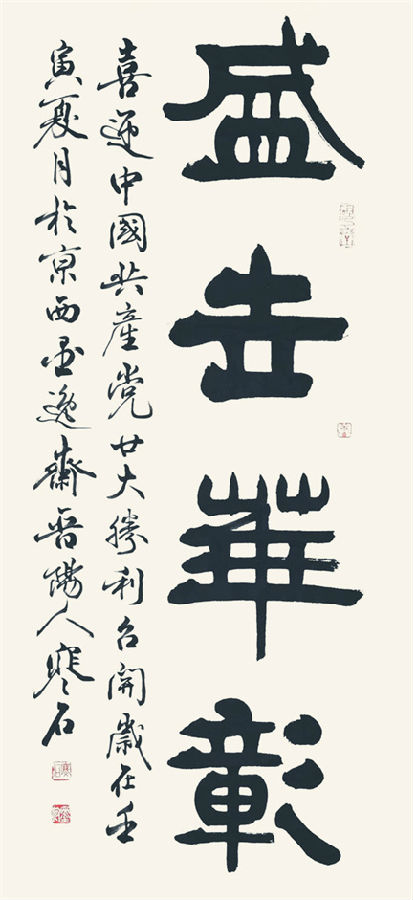 盛世華彰
喜迎中國共產党廿大勝利召開歲在壬
寅夏月於京西墨逸齋晉陽人寒石